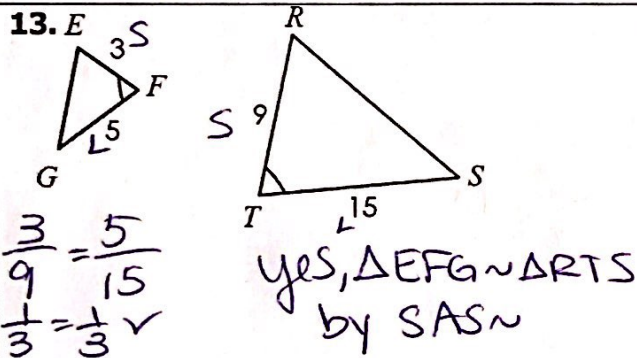 13. E
3 S
F
L 5
G
R
S 9
S
15
L
T
3/9 = 5/15
1/3 = 1/3 ✓
yes, △EFG ~ △RTS
by SAS~